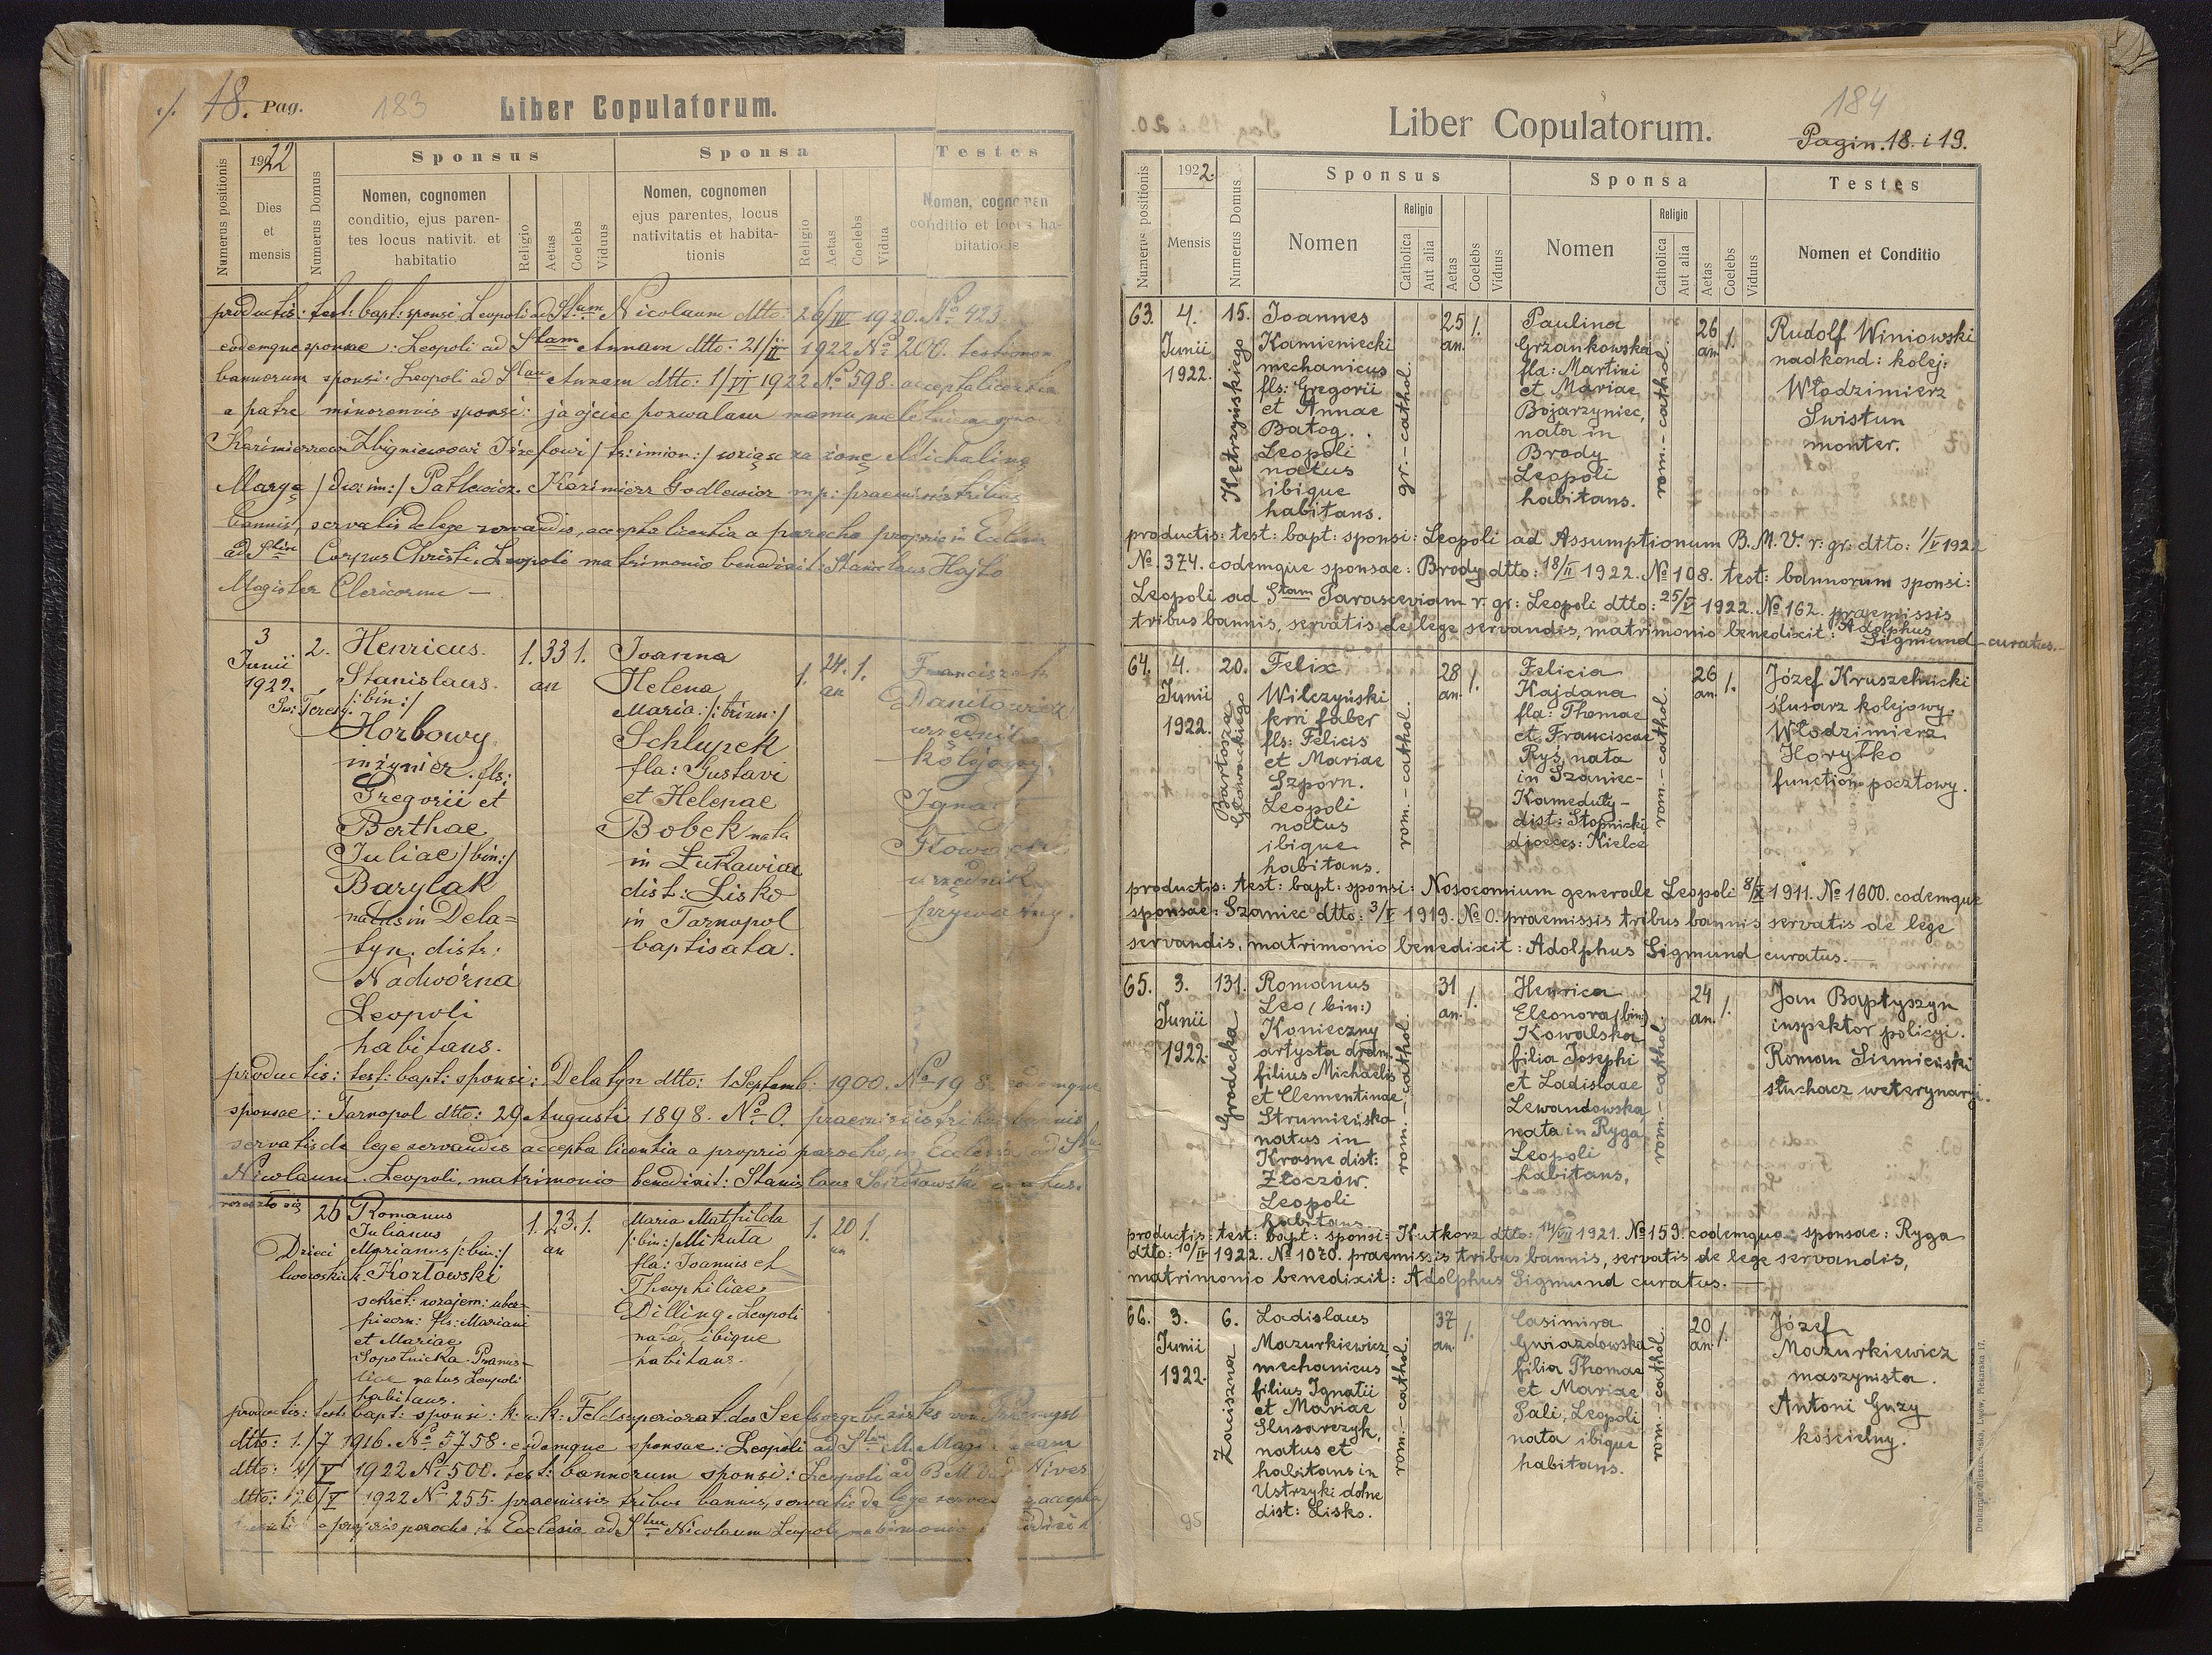 18. Pag.
183
Liber Copulatorum.
Numerus positionis
1922
Dies
et
mensis
Numerus Domus
Sponsus
Nomen, cognomen
conditio, ejus paren-
tes locus nativit. et
habitatio
Religio
Aetas
Coelebs
Viduus
Sponsa
Nomen, cognomen
ejus parentes, locus
nativitatis et habita-
tionis
Religio
Aetas
Coelebs
Vidua
Testes
Nomen, cognomen
conditio et locus ha-
bitationis
productis: test: bapt: sponsi Leopoli ad Stum Nicolaum dtto: 26/IV 1920. No 423.
eodemque sponsae: Leopoli ad Stam Annam dtto: 21/II 1922 No 200. testimon
bannorum sponsi: Leopoli ad Stam Annam dtto: 1/VI 1922 No 598. accepta licentia
a patre minorennis sponsi: ja ojciec pozwalam memu
Kazimierzowi Zbigniewowi Józefowi /tr: imion:/ wziąść za żonę Michalinę
/Dwoim:/ Patlewicz. Kazimierz Godlewicz mp: praemissis tribus
bannis, servatis de lege servandis, accepta licentia a parocho proprio in Ecclesia
ad Corpus Christi, Leopoli matrimonio benedixit: Stanislaus Hajto
Magister Clericorum —
3
Junii
1922.
Św: Teresy.
2.
Henricus.
Stanislaus.
/:bin:/
Horbowy
inżynier. fls:
Gregorii et
Berthae
Juliae /bin:/
Barylak
natus in Dela=
tyn. distr:
Nadwórna
Leopoli
habitans.
1. 33 1.
an
Joanna
Helena
Maria: /:trium:/
Schlupek
fla: Gustavi
et Helenae
Bobek nata
in Łukawica
dist: Lisko
in Tarnopol
baptisata.
1. 24. 1.
an
Franciszek
Daniłowicz
urzędnik
kolejowy.
urzędnik
prywatny.
productis: test: bapt: sponsi: Delatyn dtto: 1 Septemb: 1900. No 198. eodemque
sponsae: Tarnopol dtto: 29 Augusti 1898. No 0. praemissis tribus bannis
servatis de lege servandis accepta licentia a proprio parocho, in Ecclesia ad Stu
Nicolaum. Leopoli, matrimonio benedixit: Stanislaus
Dzieci
lwowskich.
26
Romanus
Julianus
Marianus /:bin:/
Kozłowski
sekret: wzajem: ubez-
piecz: fls: Mariani
et Mariae
Sopotnicka.
natus Leopoli
habitans.
1. 23. 1.
an
Maria Mathilda
/:bin:/ Mikuta
fla: Joannis et
Theophiliae
Dilling, Leopoli
nata, ibique
habitans.
1. 20 1.
an
productis: test: bapt: sponsi: k: u. k: Feldsuperiorat des Seelsorge bezirkes von Przemysl
dtto: 1/7 1916. No 5758. eodemque sponsae: Leopoli ad Stam M. Magdalenam
dtto: 4/V 1922 No 500. test: bannorum sponsi: Leopoli ad B M V ad Nives
dtto: 26/V 1922 No 255. praemissis tribus bannis, servatis de lege servandis accepta
licentia a proprio parocho in Ecclesia ad Stum Nicolaum Leopoli matrimonio benedixit
184
Liber Copulatorum.
Pagin. 18. i 19.
Numerus positionis
1922.
Mensis
Numerus Domus
Sponsus
Nomen
Religio
Catholica
Aut alia
Aetas
Coelebs
Viduus
Sponsa
Nomen
Religio
Catholica
Aut alia
Aetas
Coelebs
Viduus
Testes
Nomen et Conditio
63.
4.
Junii
1922.
15.
Kętrzyńskiego
Joannes
Kamieniecki
mechanicus
fls: Gregorii
et Annae
Batog.
Leopoli
natus
ibique
habitans.
gr.-cathol.
25
an.
1.
Paulina
Grzankowska
fla: Martini
et Mariae
Bojarzyniec,
nata in
Brody
Leopoli
habitans.
rom.-cathol.
26
an.
1.
Rudolf Winiowski
nadkond: kolej:
Włodzimierz
Swistun
monter.
productis: test: bapt: sponsi: Leopoli ad Assumptionum B. M. V. r. gr. dtto: 1/V 1922
No. 374. eodemque sponsae: Brody dtto: 18/II 1922. No 108. test: bannorum sponsi:
Leopoli ad Stam Parasceviam r. gr: Leopoli dtto: 25/V 1922. No 162. praemissis
tribus bannis, servatis de lege servandis, matrimonio benedixit: Adolphus
Sigmund - curatus.
64.
4.
Junii
1922.
20.
Bartosza
Głowackiego
Felix
Wilczyński
faber
fls: Felicis
et Mariae
Szporn.
Leopoli
natus
ibique
habitans.
rom.-cathol.
28
an.
1.
Felicia
Kajdana
fla: Thomae
et Franciscae
Ryś, nata
in Szaniec-
Kameduły-
dist: Stopnicki
dioeces: Kielce
rom.-cathol.
26
an.
1.
Józef Kruszelnicki
ślusarz kolejowy.
Włodzimierz
Horytko
function. pocztowy.
productis: test: bapt: sponsi: Nosocomium generale Leopoli 8/X 1911. No 1600. eodemque
sponsae: Szaniec dtto: 3/V 1919. No 0. praemissis tribus bannis servatis de lege
servandis, matrimonio benedixit: Adolphus Sigmund curatus.—
65.
3.
Junii
1922.
131.
Grodecka
Romanus
Leo (bin:)
Konieczny
artysta dram.
filius Michaelis
et Clementinae
Strumieńska
natus in
Krasne dist:
Złoczów.
Leopoli
habitans.
rom.-cathol.
31
an.
1.
Henrica
Eleonora (bin:)
Kowalska
filia Josephi
et Ladislaae
Lewandowska,
nata in Ryga,
Leopoli
habitans,
rom.-cathol.
24
an.
1.
Jan Baptyszyn
inspektor policyi.
Roman Siemieński
słuchacz weterynarji.
productis: test: bapt: sponsi: Kutkorz dtto: 14/VII 1921. No 159. eodemque sponsae: Ryga
dtto: 10/IV 1922. No 1070. praemissis tribus bannis, servatis de lege servandis,
matrimonio benedixit: Adolphus Sigmund curatus.—
66.
3.
Junii
1922.
6.
Zawiszna
Ladislaus
Mazurkiewicz
mechanicus
filius Ignatii
et Mariae
Slusarczyk,
natus et
habitans in
Ustrzyki dolne
dist: Lisko.
rom.-cathol.
37
an.
1.
Casimira
Gwiazdowska
filia Thomae
et Mariae
Pali, Leopoli
nata ibique
habitans.
rom.-cathol.
20
an.
1.
Józef
Mazurkiewicz
maszynista.
Antoni Guzy
kościelny.
95